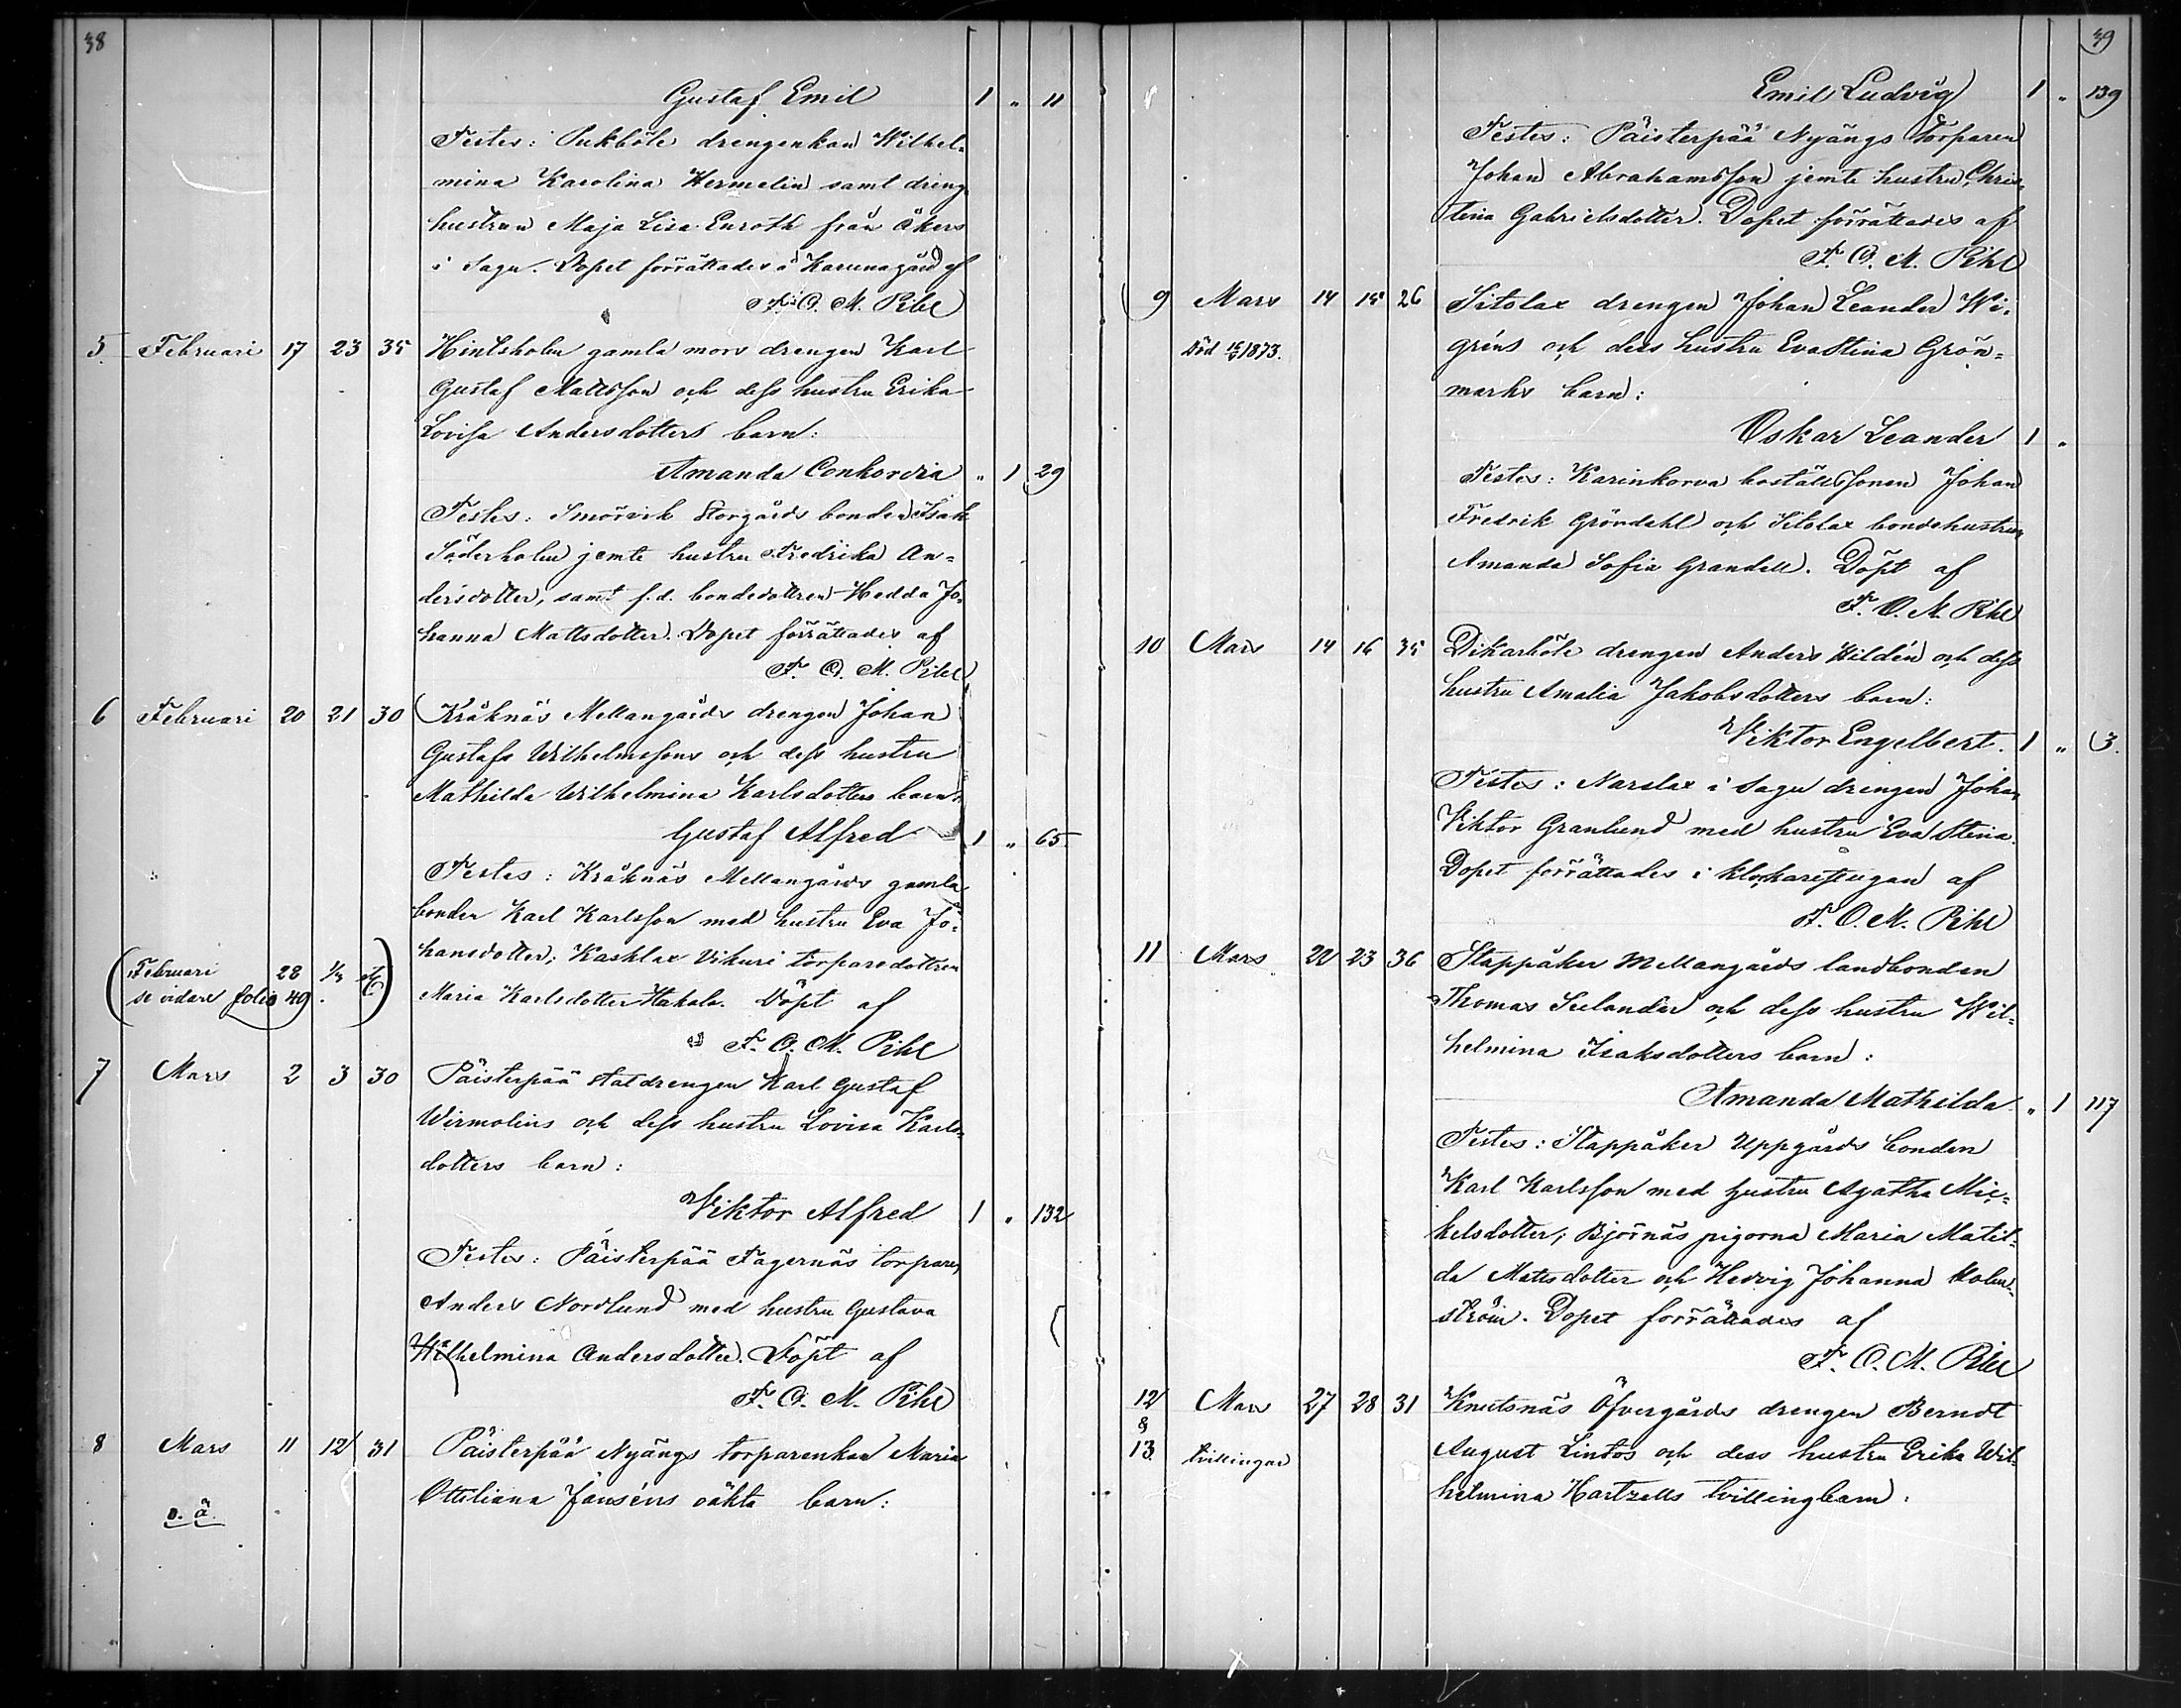 38
Gustaf Emil 1 " 11
Testes: Pukböle drengenkan Wilhel-
mina Karolina Hermelin samt dreng
hustrun Maja Lisa Enroth från Åkers
i Sagu. Dopet förrättades å Karunagård af
F. O. M. Pihl
5 Februari 17 23 35 Hintsholm gamla mors drengen Karl
Gustaf Mattsson och dess hustru Erika
Lovisa Andersdotters barn:
Amanda Conkordia " 1 29
Testes: Smörvik Storgårds bonden Isak
Söderholm jemte hustru Fredrika An-
dersdotter, samt f.d. bondedottren Hedda Jo-
hanna Mattsdotter. Dopet förrättades af
F. O. M. Pihl
6 Februari 20 21 30 Kråknäs Mellangårds drengen Johan
Gustafs Wilhelmssons och dess hustru
Mathilda Wilhelmina Karlsdotters barn:
Gustaf Alfred 1 " 65
Testes: Kråknäs Mellangårds gamla
bonden Karl Karlsson med hustru Eva Jo-
hansdotter; Kasklax Vikuri torparedottren
(Februari 28 1/3
se vidare folio 40)
Maria Karlsdotter Hakala. Döpt af
F. O. M. Pihl
7 Mars 2 3 30 Päisterpää statdrengen Karl Gustaf
Wirmolins och dess hustru Lovisa Karls-
dotters barn:
Viktor Alfred 1 " 132
Testes: Päisterpää Fagernäs torparen
Anders Nordlund med hustru Gustava
Wilhelmina Andersdotter. Döpt af
F. O. M. Pihl
8 Mars 11 12 31 Päisterpää Nyängs torparenkan Maria
Ottiliana Janséns oäkta barn:
o. ä.
39
Emil Ludvig 1 " 139
Testes: Päisterpää Nyängs torparen
Johan Abrahamsson jemte hustru Chris-
tina Gabrielsdotter. Dopet förrättades af
F. O. M. Pihl
9 Mars 14 15 26 Sitolax drengen Johan Leander Wi-
Död 1873. gréns och dess hustru Eva Stina Grön-
marks barn:
Oskar Leander 1 "
Testes: Karinkorva boställssonen Johan
Fredrik Gröndahl och Sitolax bondehustrun
Amanda Sofia Grandell. Döpt af
F. O. M. Pihl
10 Mars 14 16 35 Dikarböle drengen Anders Hildén och dess
hustru Amalia Jakobsdotters barn:
Viktor Engelbert. 1 " 3.
Testes: Narslax i Sagu drengen Johan
Viktor Granlund med hustru Eva Stina.
Dopet förrättades i klockarestugan af
F. O. M. Pihl
11 Mars 22 23 36 Stappåker Mellangårds landbonden
Thomas Seelander och dess hustru Wil-
helmina Isaksdotters barn:
Amanda Mathilda " 1 117
Testes: Stappåker Uppgårds bonden
Karl Karlsson med hustru Agatha Mic-
kelsdotter; Björnäs pigorna Maria Matil-
da Mattsdotter och Hedvig Johanna Holm-
ström. Dopet förrättades af
F. O. M. Pihl
12 Mars 27 28 31 Knutsnäs Öfvergårds drengen Berndt
&
13 tvillingar August Lintos och dess hustru Erika Wil-
helmina Hartzells tvillingbarn: